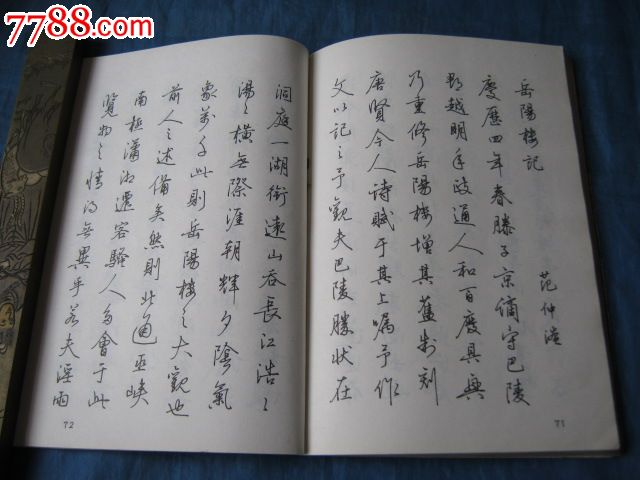 7788.com
岳陽樓記
范仲淹
慶歷四年春滕子京謫守巴陵
郡越明年政通人和百廢具興
乃重修岳陽樓增其舊制刻
唐賢今人詩賦于其上囑予作
文以記之予觀夫巴陵勝狀在
71
洞庭一湖銜遠山吞長江浩〻
湯〻橫無際涯朝輝夕陰氣
象萬千此則岳陽樓之大觀也
前人之述備矣然則北通巫峽
南極瀟湘遷客騷人多會于此
覽物之情得無異乎若夫淫雨
72